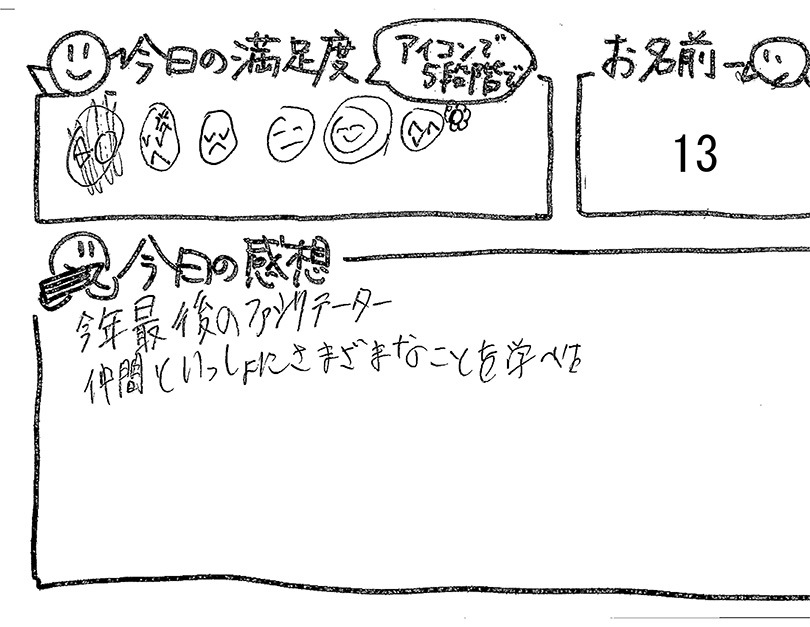 今日の満足度
アイコンで
5段階で
お名前
13
今日の感想
今年最後のファシリテーター
仲間といっしょにさまざまなことを学べた